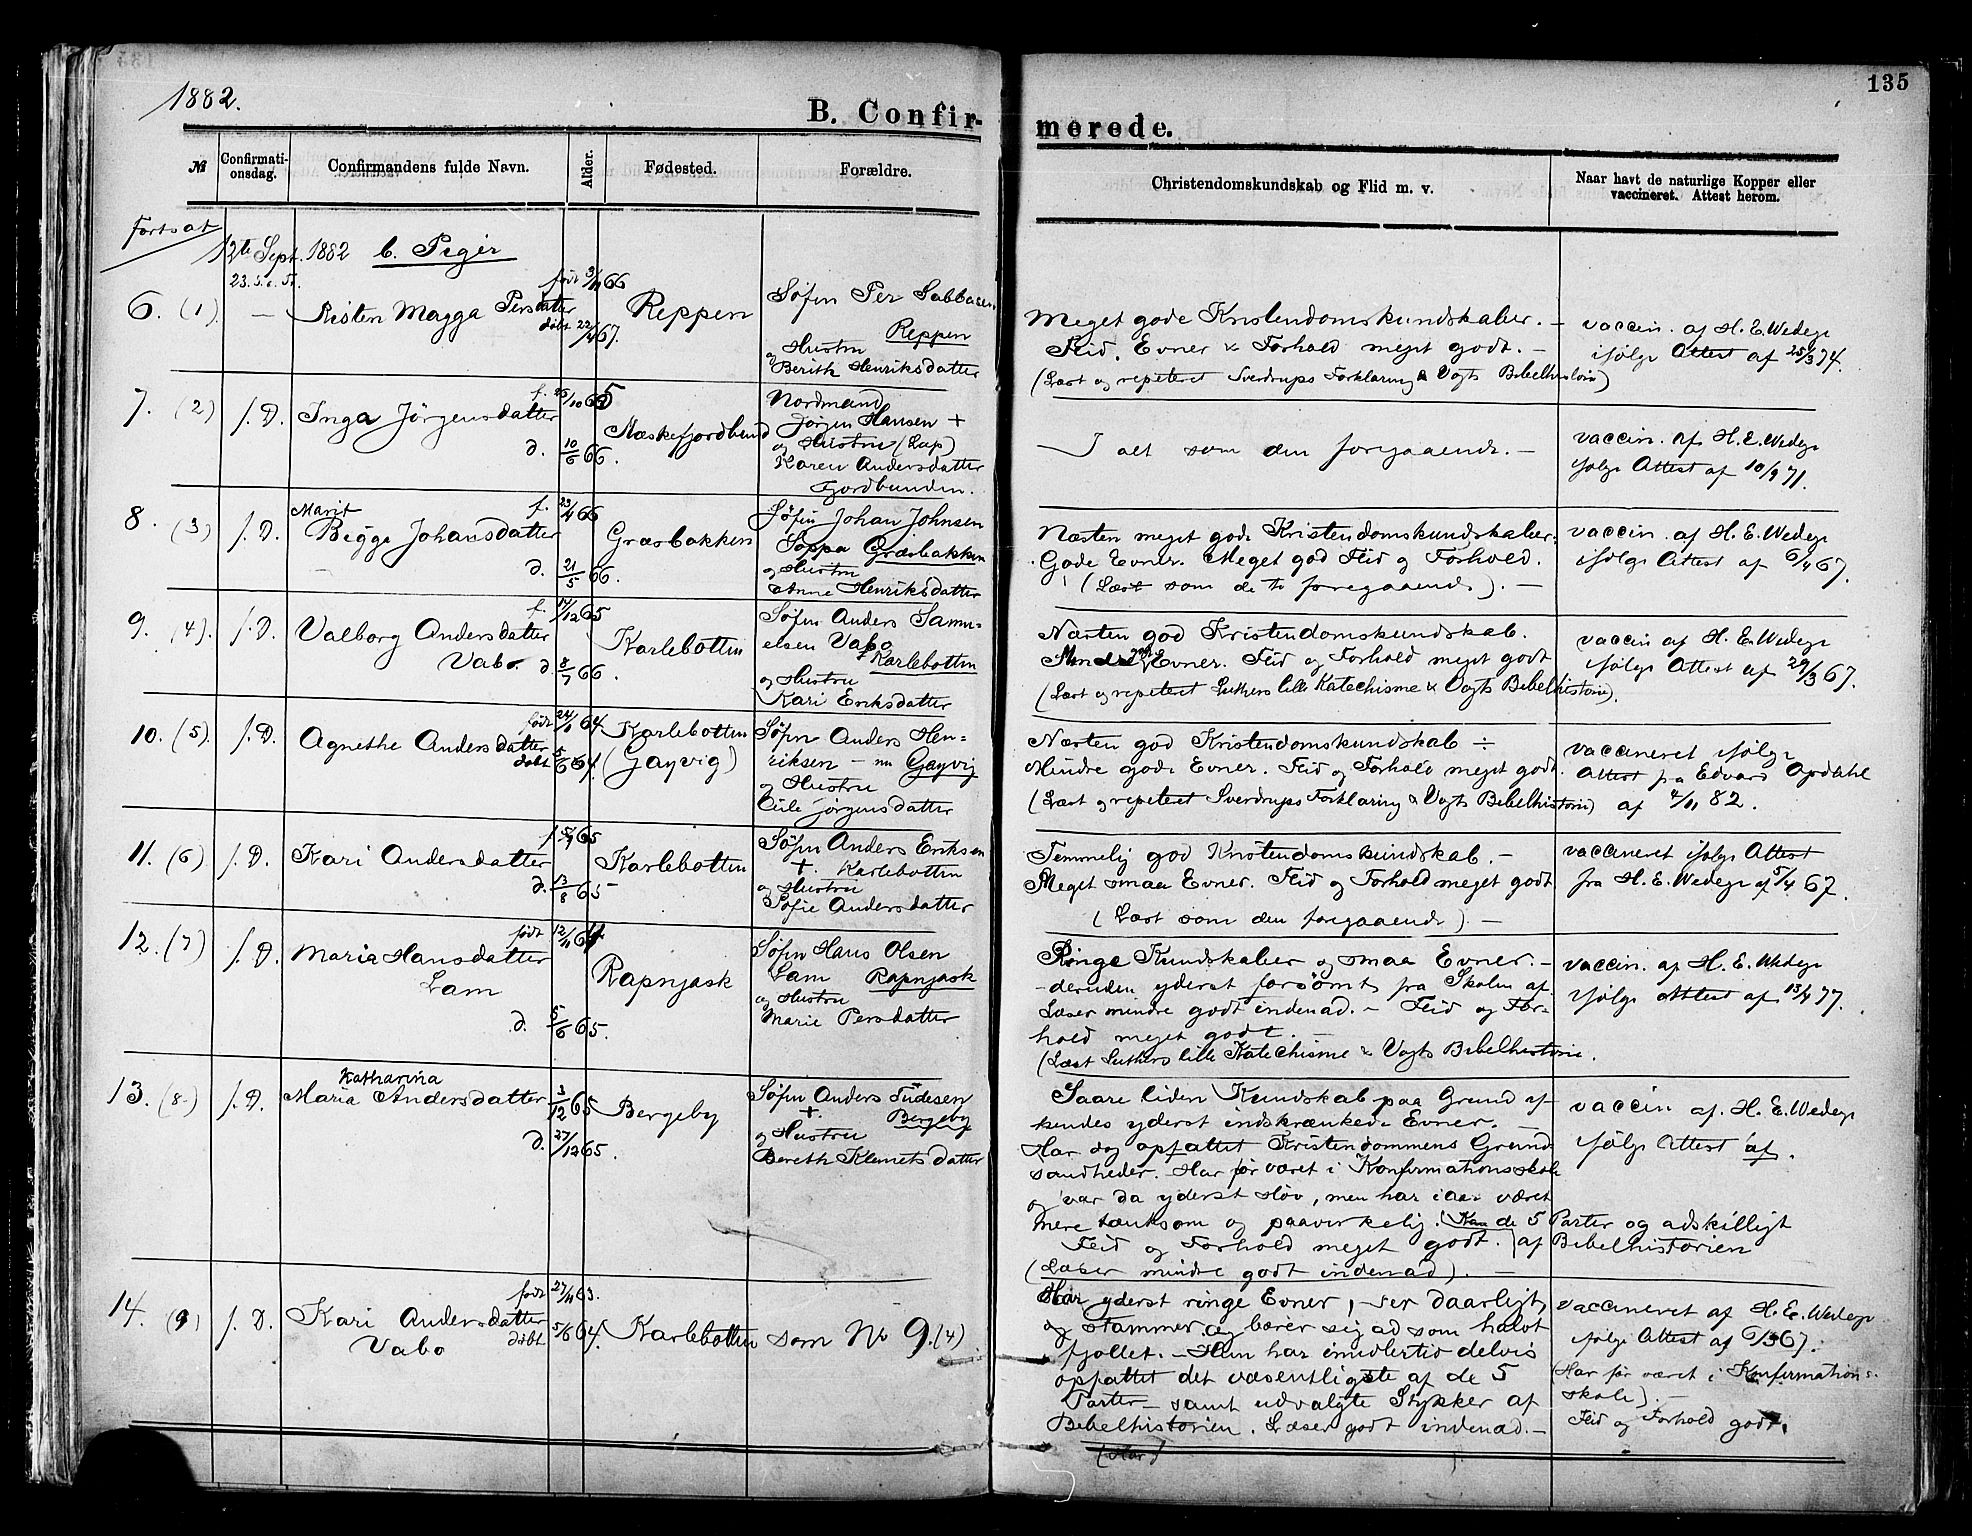 135
1882.
B. Confir-
merede.
№
Confirmati-
onsdag.
Confirmandens fulde Navn.
Alder.
Fødested.
Forældre.
Christendomskundskab og Flid m. v.
Naar havt de naturlige Kopper eller
vaccineret. Attest herom.
Fortsat
12te Sept. 1882 b. Piger
6. (1) —
Risten Magga Persdatter
født 3/11 66
døbt 22/4 67.
Reppen
Søfin Per Sabbasen
Reppen
og Hustru
Berith Henriksdatter
Meget gode Kristendomskundskaber. —
Flid, Evner & Forhold meget godt. —
(Læst og repeteret Sverdrups Forklaring & Vogts Bibelhistorie)
vaccin. af H. E. Wedege
ifølge Attest af 25/3 74.
7. (2) f. D.
Inga Jörgensdatter
f. 26/10 65
d. 10/6 66.
Mæskefjordbund
Nordmand
Jörgen Hansen +
og Hustru (Lap)
Karen Andersdatter
Fjordbunden.
— I alt som den foregaaende. —
vaccin. af H. E. Wedege
ifølge Attest af 10/9 71.
8. (3) f. D.
Marit
Bigge Johansdatter
f. 23/4 66
d. 21/5 66.
Græsbakken
Søfin Johan Johnsen
Soppa Græsbakken
og Hustru
Anne Henriksdatter
Næsten meget gode Kristendomskundskaber.
Gode Evner. Meget god Flid og Forhold.
(Læst som de to foregaaende). —
vaccin. af H. E. Wedege
ifølge Attest af 6/4 67.
9. (4). f. D.
Valborg Andersdatter
Vabo
f. 17/12 65
d. 8/7 66.
Karlebotten
Søfin Anders Samu-
elsen Vabo
Karlebotten
og Hustru
Kari Eriksdatter
Næsten god Kristendomskundskab.
Mindre gode Evner. Flid og Forhold meget godt
(Læst og repeteret Luthers lille Katechisme & Vogts Bibelhistorie).
vaccin af H. E. Wedege
ifølge Attest af 29/3 67.
10. (5) f. D.
Agnethe Andersdatter
født 24/1 64.
døbt 5/6 64.
Karlebotten
(Gayvig)
Søfin Anders Hen-
riksen — nu Gayvig
og Hustru
Cicile Jørgensdatter
Næsten god Kristendomskundskab ÷
Mindre gode Evner. Flid og Forhold meget godt.
(Læst og repeteret Sverdrups Forklaring & Vogts Bibelhistorie)
vaccineret ifølge
Attest fra Edvard Opdahl
af 4/11 82.
11. (6) f. D.
Kari Andersdatter
d. 13/8 65
Karlebotten
Søfin Anders Eriksen
+. Karlebotten
og Hustru
Sofie Andersdatter
Temmelig god Kristendomskundskab. —
Meget smaa Evner. Flid og Forhold meget godt
(Læst som den foregaaende) —
vaccineret ifølge Attest
fra H. E. Wedege af 5/4 67.
12. (7) f. D.
Maria Hansdatter
Lam
født 12/11 64
d. 5/6 65.
Rapnjask
Søfin Hans Olsen
Lam Rapnjask
og Hustru
Marie Persdatter
Ringe Kundskaber og smaa Evner. —
- desuden yderst forsömt fra Skolen af.
Læser mindre godt indenad. — Flid og For-
hold meget godt. —
(Læst Luthers lille Katechisme & Vogts Bibelhistorie.
vaccin. af H. E. Wedege
ifølge Attest af 13/4 77.
13. (8) f. D.
Katharina
Maria Andersdatter
3/12 65
d. 27/12 65.
Bergeby
Søfin Anders Tudesen
+. Bergeby
og Hustru
Bereth Klemetsdatter
Saare liden Kundskab paa Grund af
hendes yderst indskrænkede Evner. —
Har dog opfattet Kristendommens Grund-
sandheder. Har før været i Konfirmationsskole
og var da yderst sløv, men har iaar været
mere tænksom og paavirkelig. (Kan de 5 Parter og adskilligt
Flid og Forhold meget godt. ) af Bibelhistorien
(Læser mindre godt indenad). —
vaccin af. H. E. Wedege
ifølge Attest af.
14. (9) f. D.
Kari Andersdatter
Vabo
født 27/11 63.
døbt 5/6 64.
Karlebotten
som No 9. (4)
Har yderst ringe Evner, ser daarligt,
og stammer og bærer sig ad som halvt
fjollet. — Hun har imidlertid delvis
opfattet det væsentligste af de 5
Parter — samt udvalgte Stykker af
Bibelhistorien. Læser godt indenad. —
(Har)
vaccineret af H. E. Wedege
ifølge Attest af 6/3 67.
(Har før været i Konfirmations-
skole). —
Flid og Forhold godt.